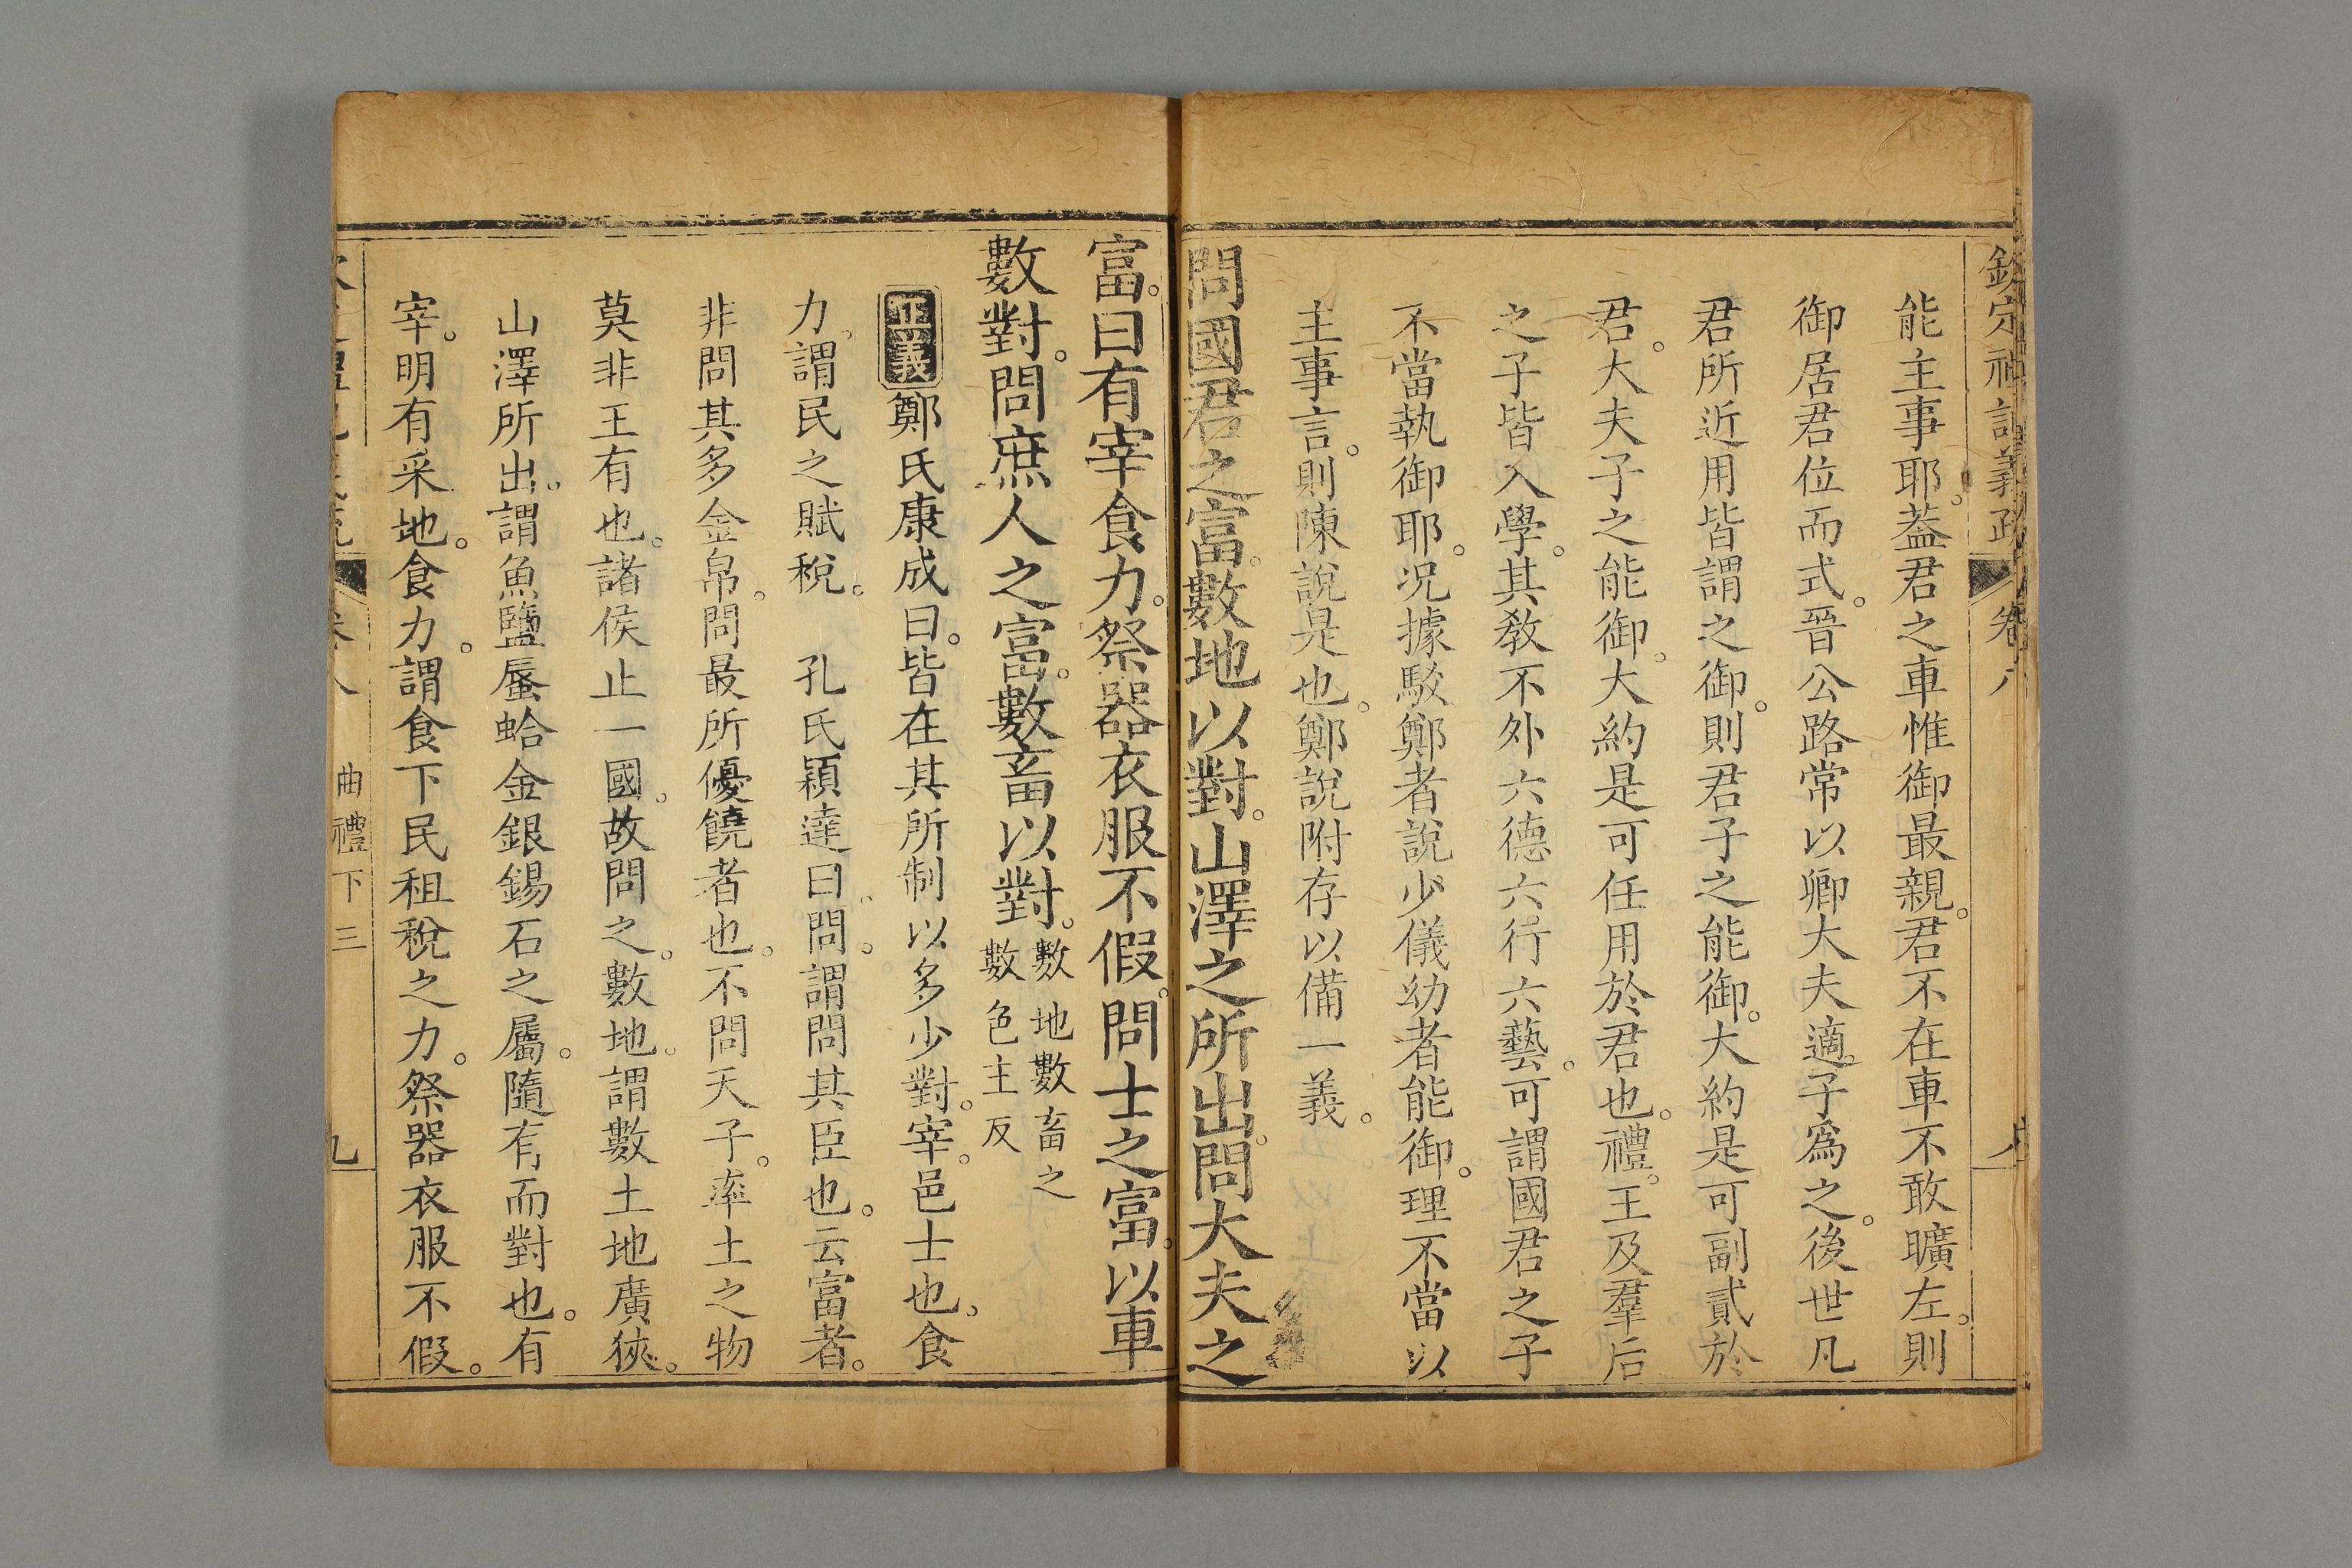 欽定禮記義疏 卷八
能主事耶。葢君之車惟御最親。君不在車不敢曠左。則
御居君位而式。晉公路常以卿大夫適子爲之。後世凡
君所近用皆謂之御。則君子之能御。大約是可副貳於
君。大夫子之能御。大約是可任用於君也。禮。王及羣后
之子皆入學。其敎不外六德六行六藝。可謂國君之子
不當執御耶。况據駁鄭者說少儀幼者能御。理不當以
主事言。則陳說是也。鄭說附存以備一義。
問國君之富。數地以對。山澤之所出。問大夫之
富。曰有宰食力。祭器衣服不假。問士之富。以車
數對。問庶人之富。數畜以對。數地數畜之
數色主反
正義鄭氏康成曰。皆在其所制以多少對。宰。邑士也。食
力。謂民之賦稅。 孔氏穎達曰。問。謂問其臣也。云富者。
非問其多金帛。問最所優饒者也。不問天子。率土之物
莫非王有也。諸侯止一國。故問之。數地。謂數土地廣狹。
山澤所出。謂魚鹽蜃蛤金銀錫石之屬。隨有而對也。有
宰。明有采地。食力。謂食下民租稅之力。祭器衣服不假。
曲禮下三 九